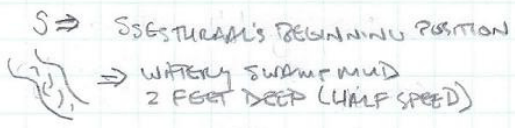 S ⇒ SSESTHRAAL'S BEGINNING POSITION
⇒ WATERY SWAMP MUD
2 FEET DEEP (HALF SPEED)